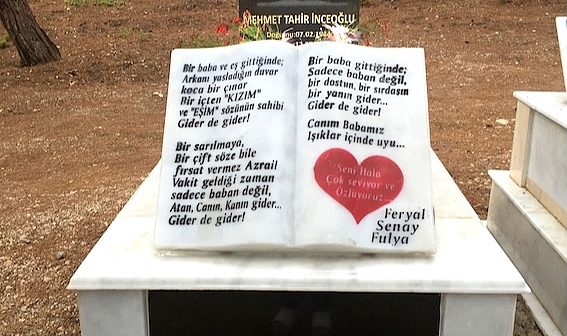 MEHMET TAHİR İNCEOĞLU
Doğumu:07.02.1944
Bir baba ve eş gittiğinde;
Arkanı yasladığın duvar
koca bir çınar
Bir içten "KIZIM"
ve "EŞİM" sözünün sahibi
Gider de gider!
Bir sarılmaya,
Bir çift söze bile
fırsat vermez Azrail
Vakit geldiği zaman
sadece baban değil,
Atan, Canın, Kanın gider...
Gider de gider!
Bir baba gittiğinde;
Sadece baban değil,
bir dostun, bir sırdaşın
bir yanın gider...
Gider de gider!
Canım Babamız
Işıklar içinde uyu...
Seni Hala
Çok seviyor ve
Özlüyoruz...
Feryal
Senay
Fulya